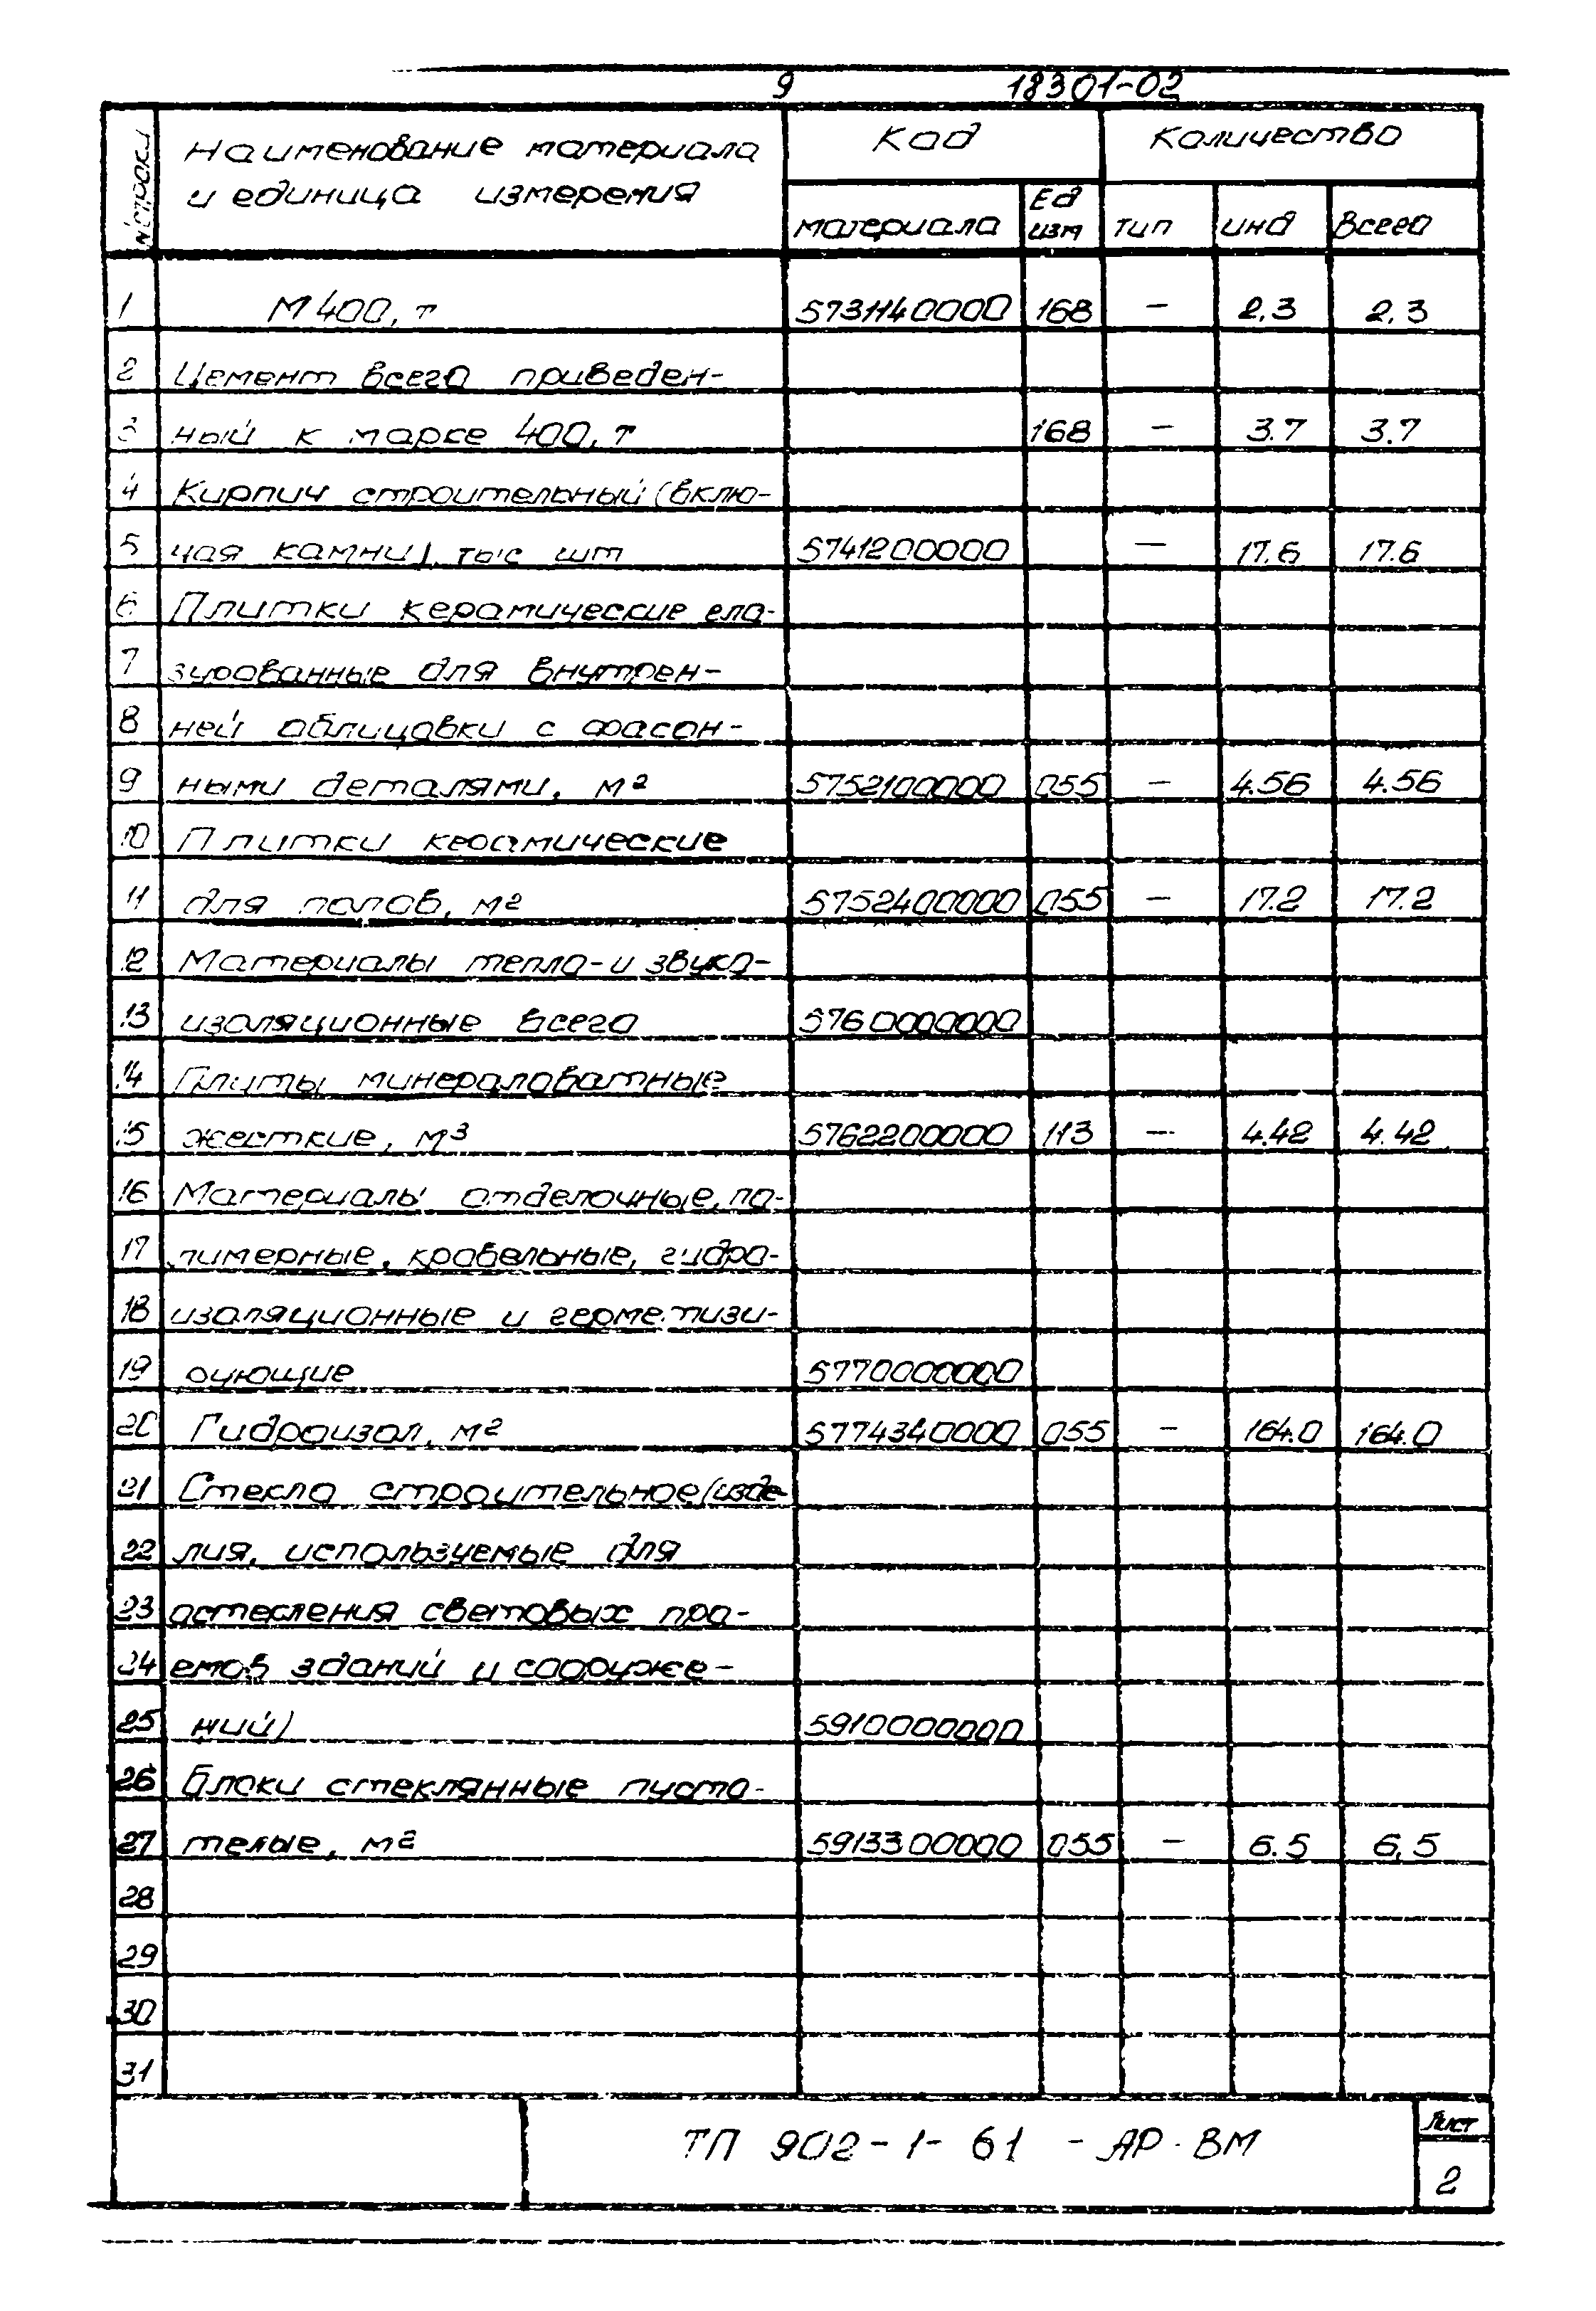 9 18301-02
№ строки Наименование материала и единица измерения Код Количество
материала Ед изм тип инд Всего
1 М 400, т 5731140000 168 — 2,3 2,3
2 Цемент всего приведен-
3 ный к марке 400, т 168 — 3.7 3.7
4 Кирпич строительный (вклю-
5 чая камни), тыс шт 5741200000 — 17.6 17.6
6 Плитки керамические гла-
7 зурованные для внутрен-
8 ней облицовки с фасон-
9 ными деталями, м² 5752100000 055 — 4.56 4.56
10 Плитки керамические
11 для полов, м² 5752400000 055 — 17.2 17.2
12 Материалы тепло- и звуко-
13 изоляционные всего 5760000000
14 Плиты минераловатные
15 жесткие, м³ 5762200000 113 — 4.42 4.42
16 Материалы отделочные, по-
17 лимерные, кровельные, гидро-
18 изоляционные и герметизи-
19 рующие 5770000000
20 Гидроизол, м² 5774340000 055 — 164.0 164.0
21 Стекло строительное (изде-
22 лия, используемые для
23 остекления световых про-
24 емов зданий и сооруже-
25 ний) 5910000000
26 Блоки стеклянные пусто-
27 телые, м² 5913300000 055 — 6.5 6,5
28
29
30
31
ТП 902-1-61 -АР.ВМ
Лист
2